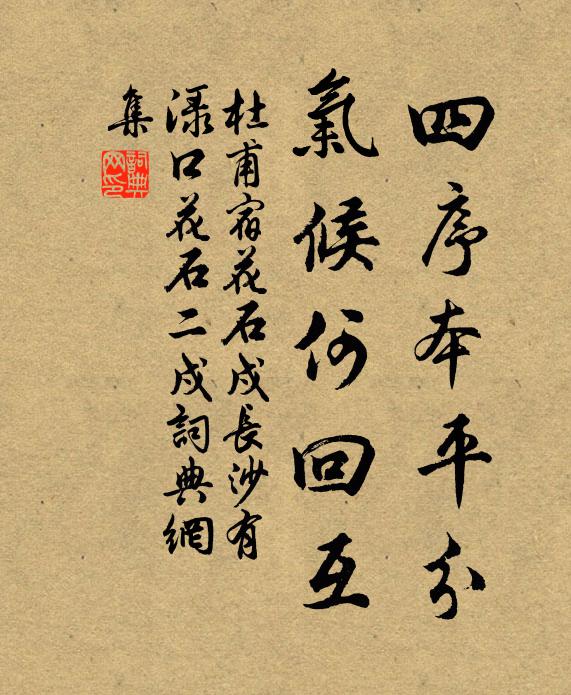 四序本平分
氣候何回互
杜甫宿花石戍長沙有
渌口花石二戍詞典網
集
詞典
网印